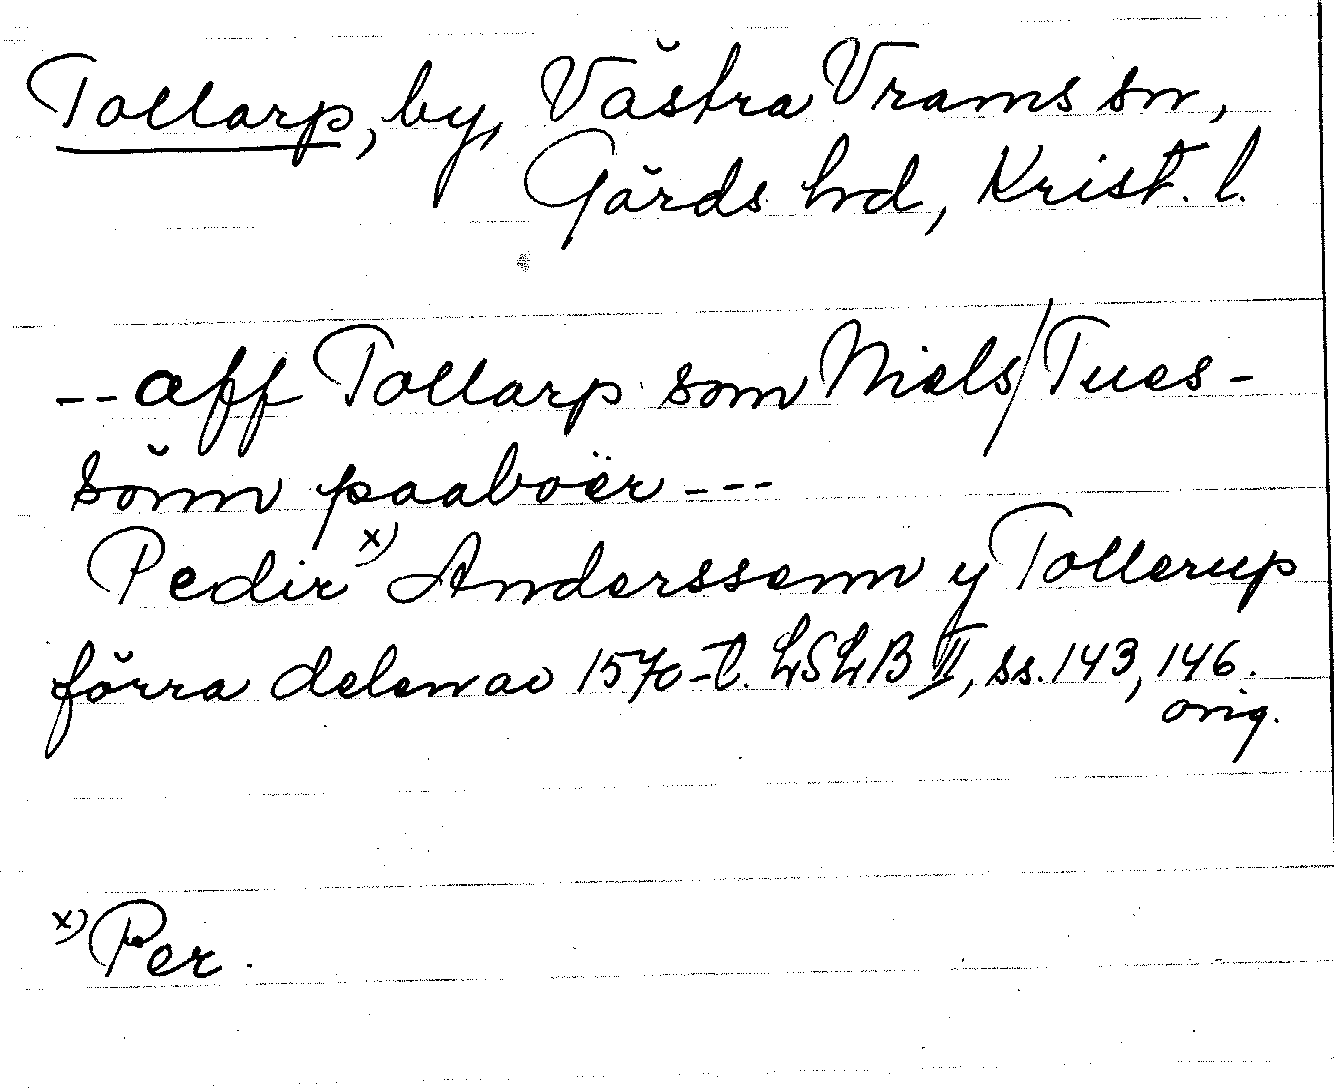 Tollarp, by, Västra Vrams sn,
Gärds hd, Krist. l.
-- aff Tollarp som Niels/Tues-
sönn paaboër ---
Pedir x) Anderssenn y Tollerup
förra delen av 1570-t. LSLB III, ss. 143, 146.
orig.
x) Per.